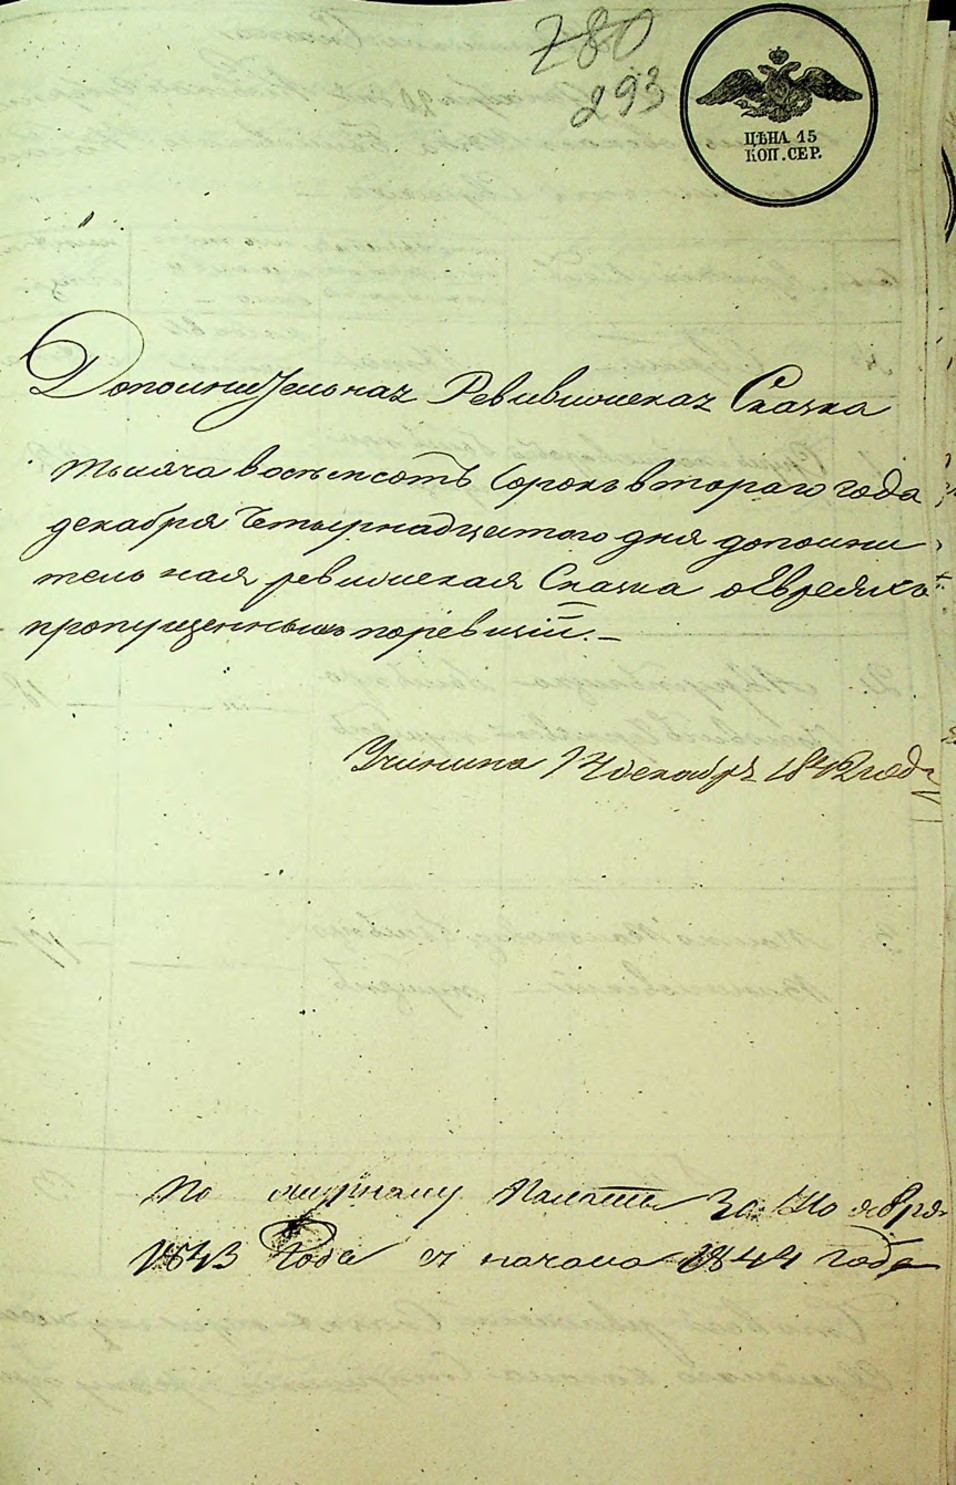 780
293
ЦѢНА 15
КОП. СЕР.
Дополнительная Ревивизиская Сказка
тысяча восемсотъ сорокъ втораго года
декабря четырнадцатого дня дополни
тельная ревизиская Сказка о Евреяхъ
пропущенныхъ поревизіи. —
Учинина 14 декабря 1842 года
По журналу Палаты За: Ноября
1843 Года съ начала 1844 года